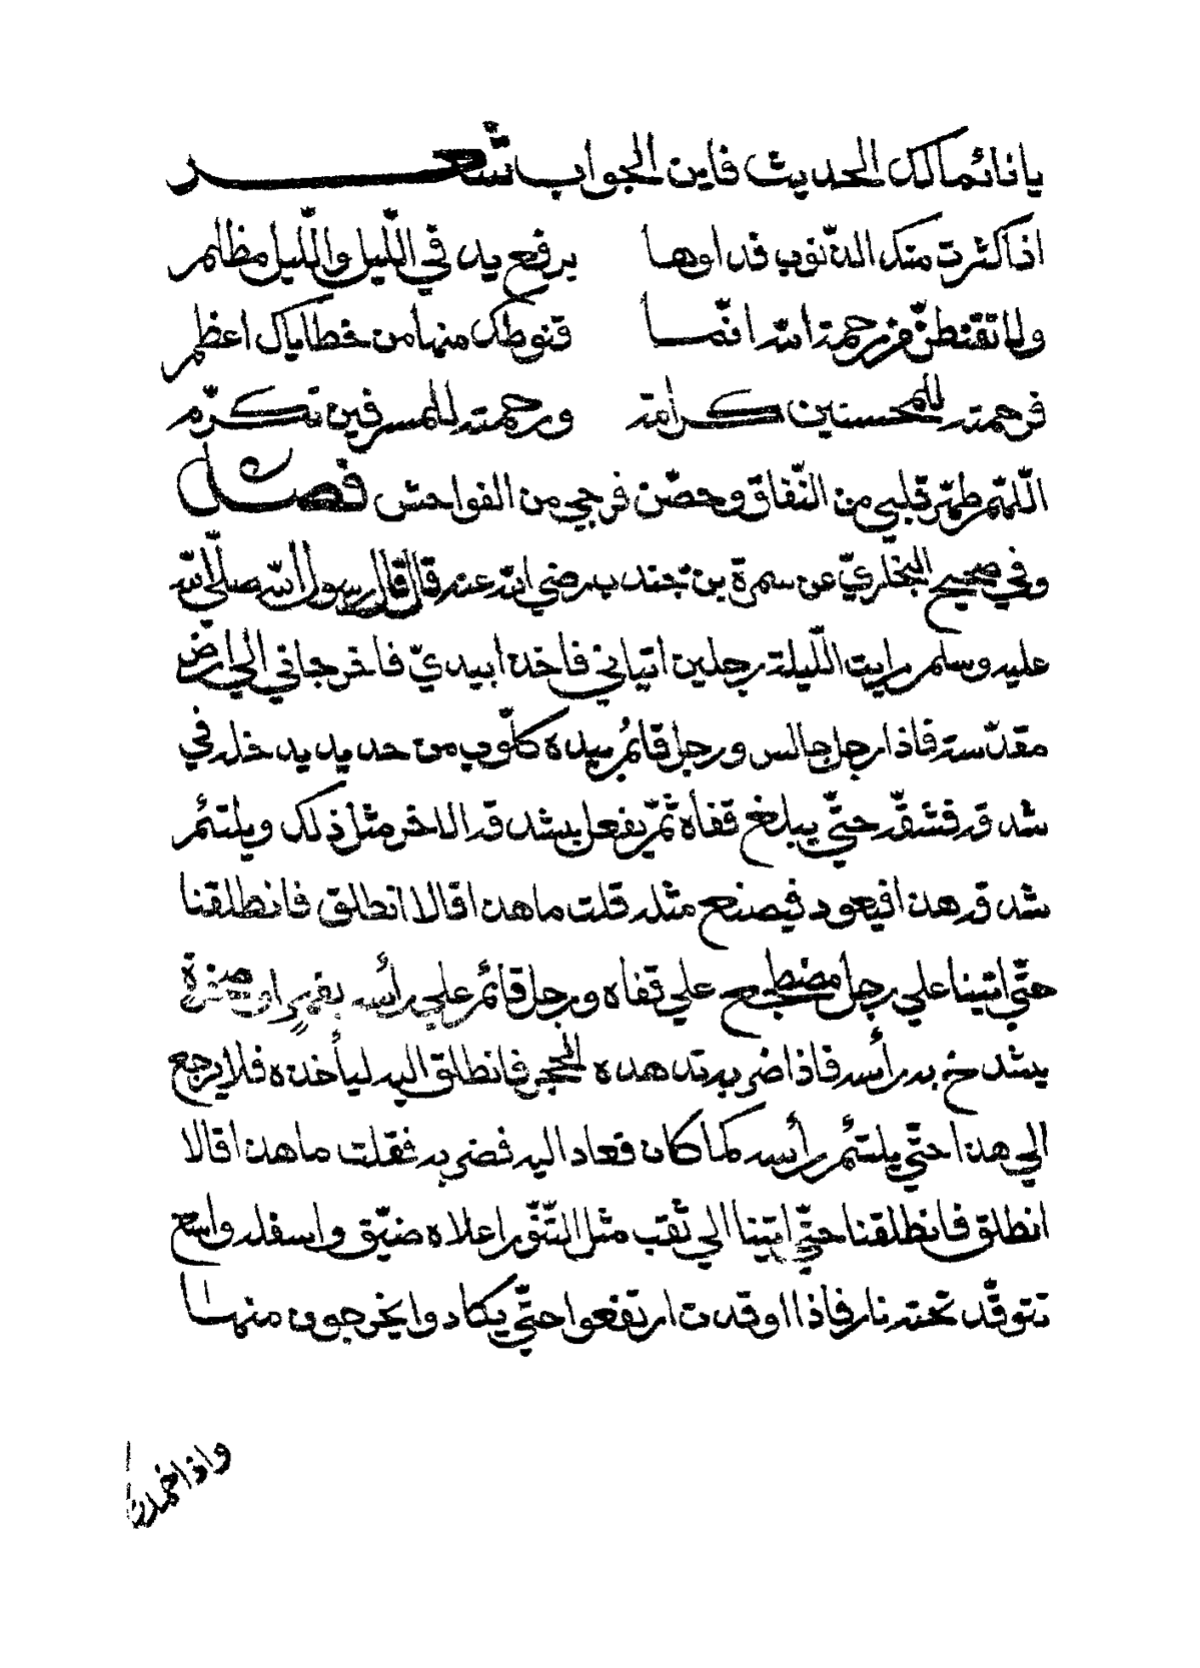 يا نائما لك الحديث فاين الجواب شعر
اذا كثرت منك الذنوب فداوها برفع يد في اللّيل واللّيل مظلم
ولا تقنطنّ من رحمة الله انّما قنوطك منها من خطاياك اعظم
فرحمته للمحسنين كرامة ورحمته للمسرفين تكرّم
اللّهم طهّر قلبي من النّفاق وحصّن فرجي من الفواحش فصل
وفي صحيح البخاريّ عن سمرة بن جندب رضي الله عنه قال قال رسول الله صلّى الله
عليه وسلم رايت اللّيلة رجلين اتياني فاخذا بيديّ فاخرجاني الي ارض
مقدّسة فاذا رجل جالس ورجل قائم بيده كلّوب من حديد يدخله في
شدقه فشقّه حتّي يبلغ قفاه ثمّ يفعل بشدقه الاخر مثل ذلك ويلتئم
شدقه هذا فيعود فيصنع مثله قلت ما هذا قالا انطلق فانطلقنا
حتّي اتينا علي رجل مضطجع علي قفاه ورجل قائم علي رأسه بفهر او صخرة
يشدخ به رأسه فاذا ضربه تدهده الحجر فانطلق اليه ليأخذه فلا يرجع
الي هذا حتّي يلتئم رأسه كما كان فعاد اليه فضربه فقلت ما هذا قالا
انطلق فانطلقنا حتّي اتينا الي ثقب مثل التّنّور اعلاه ضيّق واسفله واسع
تتوقّد تحته نار فاذا اوقدت ارتفعوا حتّي يكادوا يخرجون منها
واذا خمدت